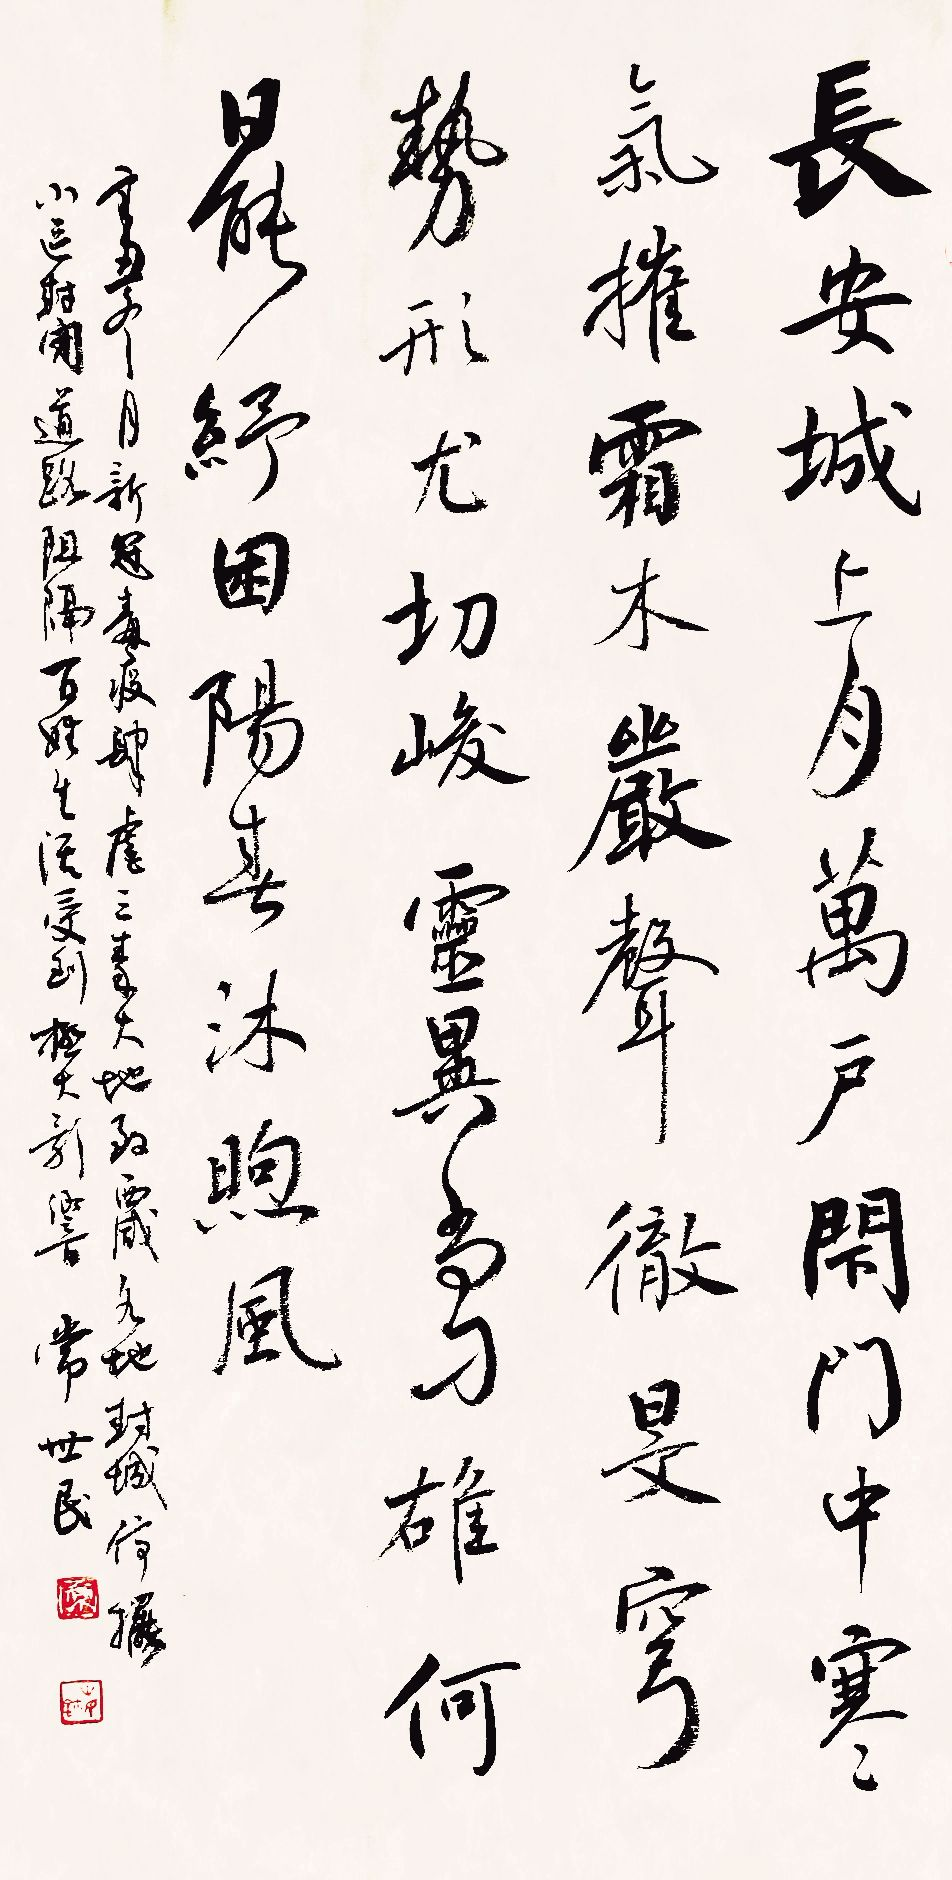 長安城上月萬戶閉門中寒
氣摧霜木嚴聲徹旻穹
勢形尤切峻靈異尚雄何
能紓困陽春沐煦風
辛丑年月新冠毒疫肆虐三秦大地致嚴各地封城停擺
小區封閉道路阻隔百姓生活受到極大影響 常世民